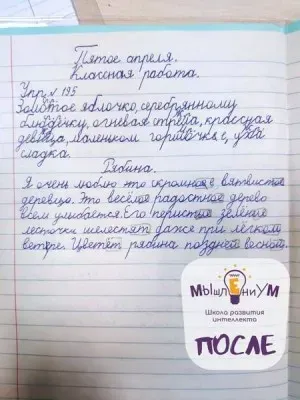 Пятое апреля.
Классная работа.
Упр. № 195
Золотое яблочко, серебрянному
блюдечку, огневая стрела, красная
девица, маленьком горшочке, уха
сладка.
Рябина.
Я очень люблю это скромное ветвистое
деревцо. Это весёлое радостное дерево
всем улыбается. Его перистые зелёные
лесточки шелестят даже при лёгком
ветре. Цветёт рябина поздней весной.
МЫШЛЕНИУМ
Школа развития
интеллекта
ПОСЛЕ